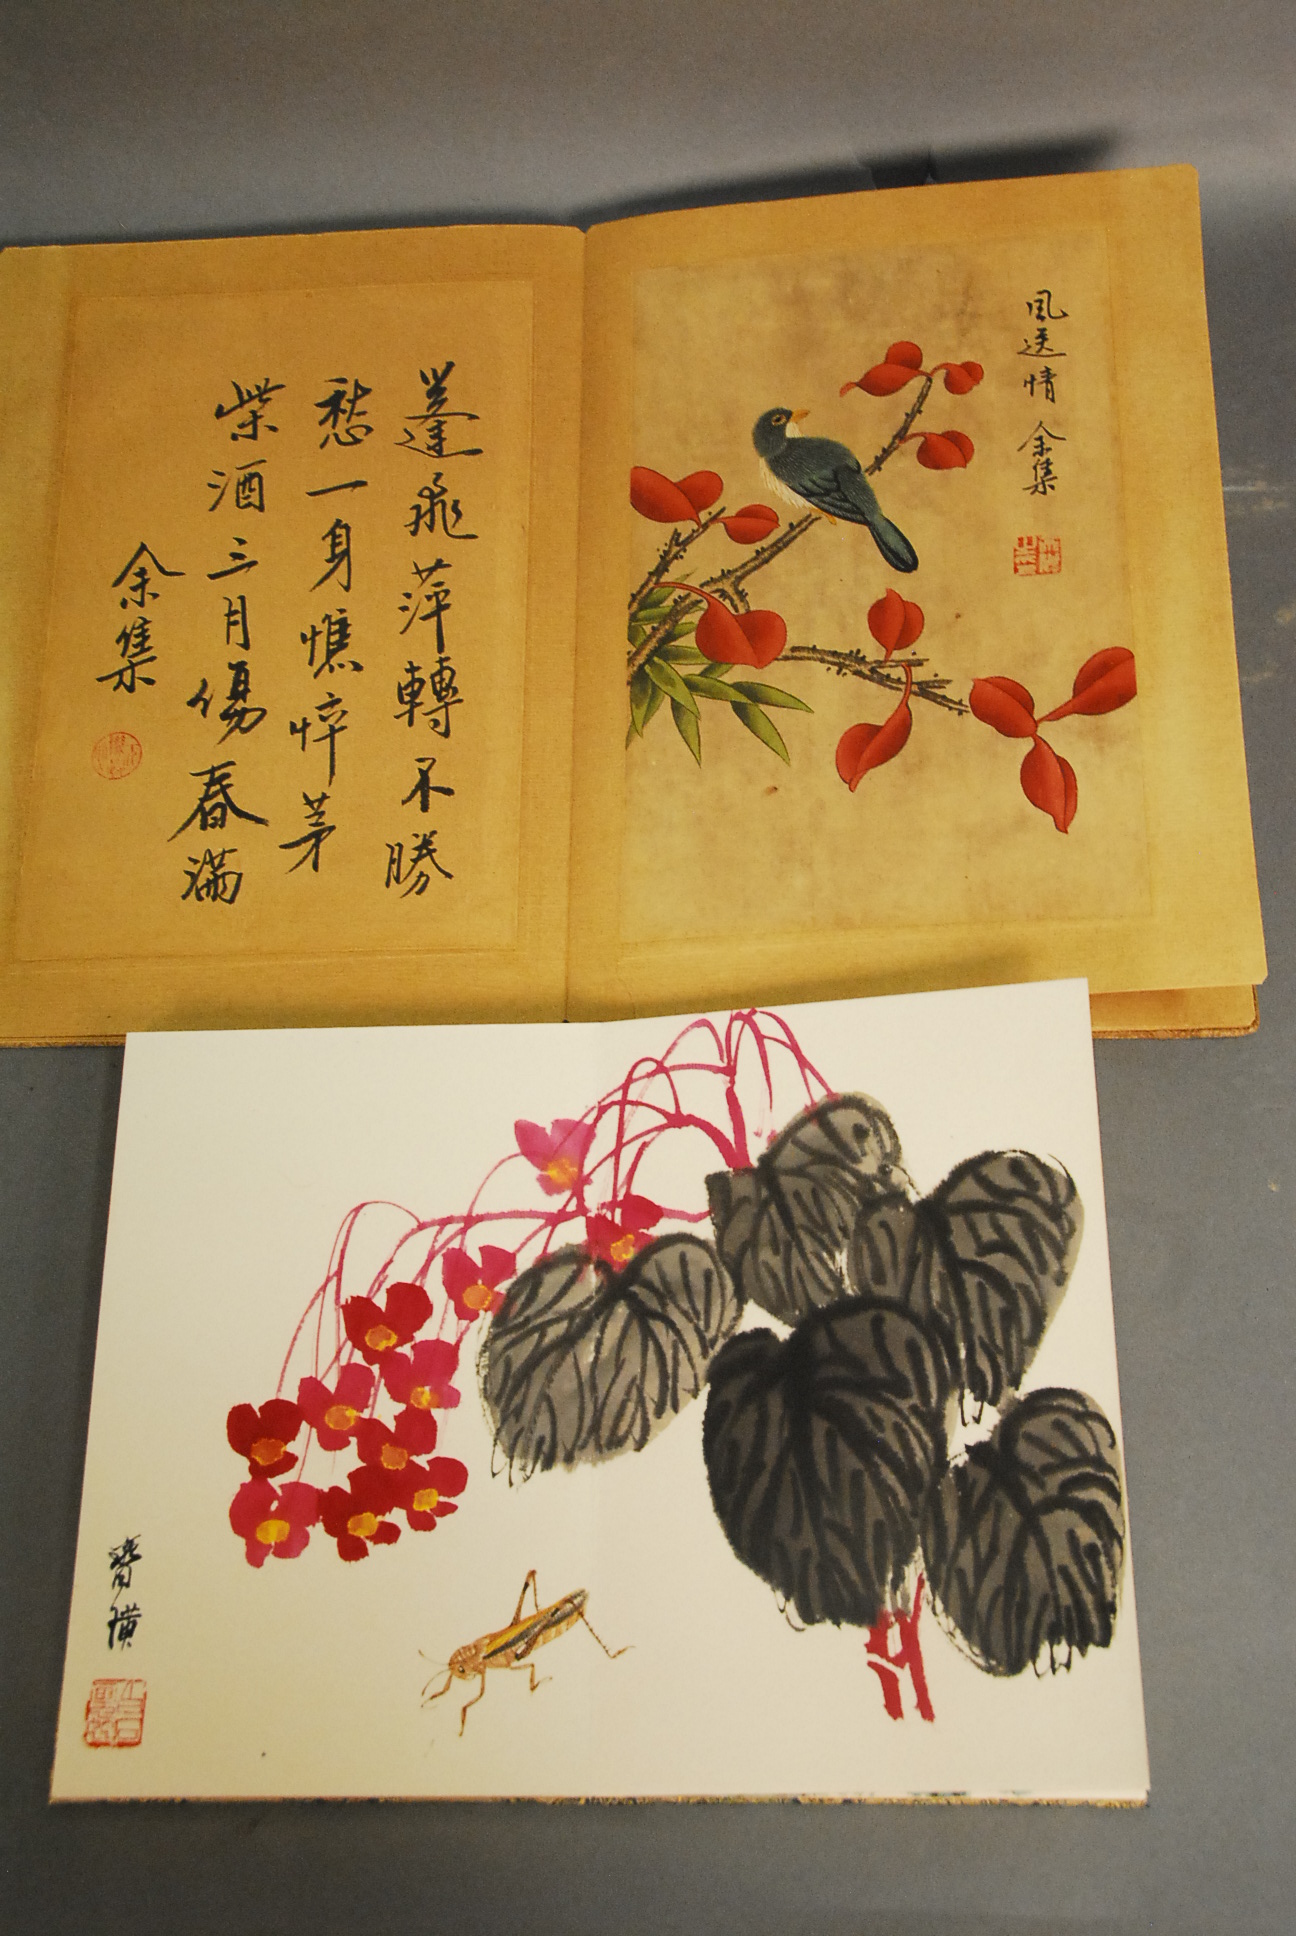 風送情 余集
蓬飛萍轉不勝
愁一身憔悴茅
柴酒三月傷春滿
余集
璜